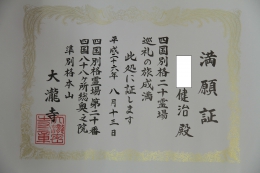 満願証
健治殿
四国別格二十霊場
巡礼の旅成満
此処に証します
平成二十六年 八月十三日
四国別格霊場第二十番
四国八十八ヶ所総奥之院
準別格本山
大瀧寺